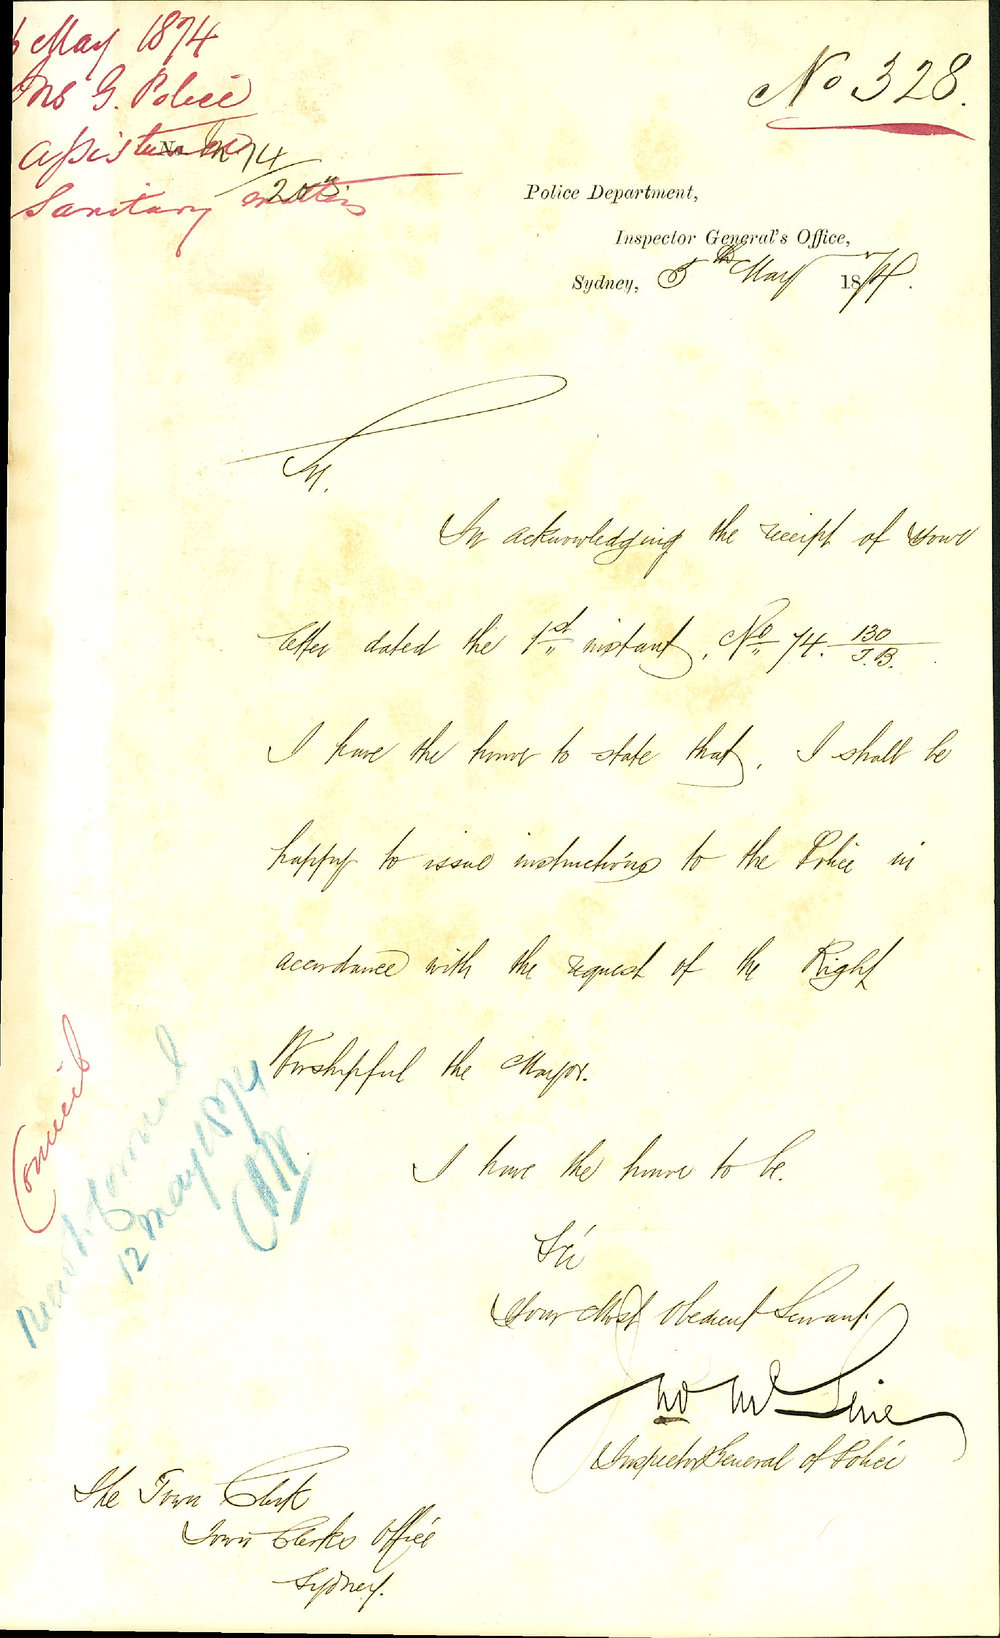 May 1874
Ins G. Police
assistance
Sanitary matters
No 74
No 328.
Police Department,
Inspector General's Office,
Sydney, 5th May 1874.
Sir.
In acknowledging the receipt of your
letter dated the 1st instant, No 74. 130/T.B.
I have the honor to state that, I shall be
happy to issue instructions to the Police in
accordance with the request of the Right
Worshipful the Mayor.
I have the honor to be.
Sir
Your Most Obedient Servant
Inspector General of Police
The Town Clerk
Town Clerks Office
Sydney.
Council
Council
12 May 1874